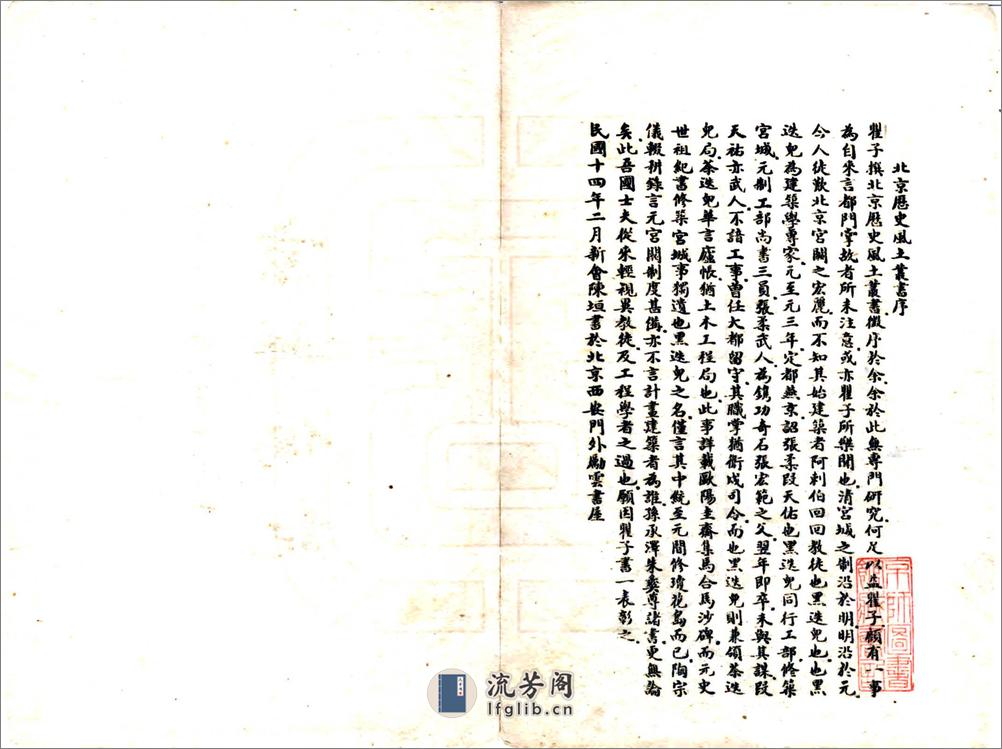 北京歷史風土叢書序
瞿子撰北京歷史風土叢書徵序於余余於此無專門研究何足以益瞿子顧有一事
為自來言都門掌故者所未注意或亦瞿子所樂聞也清宮城之制沿於明明沿於元
今人徒歎北京宮闕之宏麗而不知其始建築者阿剌伯回回教徒也黑迭兒也也黑
迭兒為建築學專家元至元三年定都燕京詔張柔段天佑也黑迭兒同行工部修築
宮城元制工部尚書三員張柔武人為鐫功奇石張宏範之父翌年即卒未與其謀段
天祐亦武人不諳工事曾任大都留守其職掌猶衛戍司令而也黑迭兒則兼領茶迭
兒局茶迭兒華言廬帳猶土木工程局也此事詳載歐陽圭齋集馬合馬沙碑而元史
世祖紀書修築宮城事獨遺也黑迭兒之名僅言其中統至元間修瓊花島而已陶宗
儀輟耕錄言元宮闕制度甚備亦不言計畫建築者為誰孫承澤朱彝尊諸書更無論
矣此吾國士夫從來輕視異教徒及工程學者之過也願因瞿子書一表彰之
民國十四年二月新會陳垣書於北京西安門外勵雲書屋
京師圖書
流芳阁
lfglib.cn